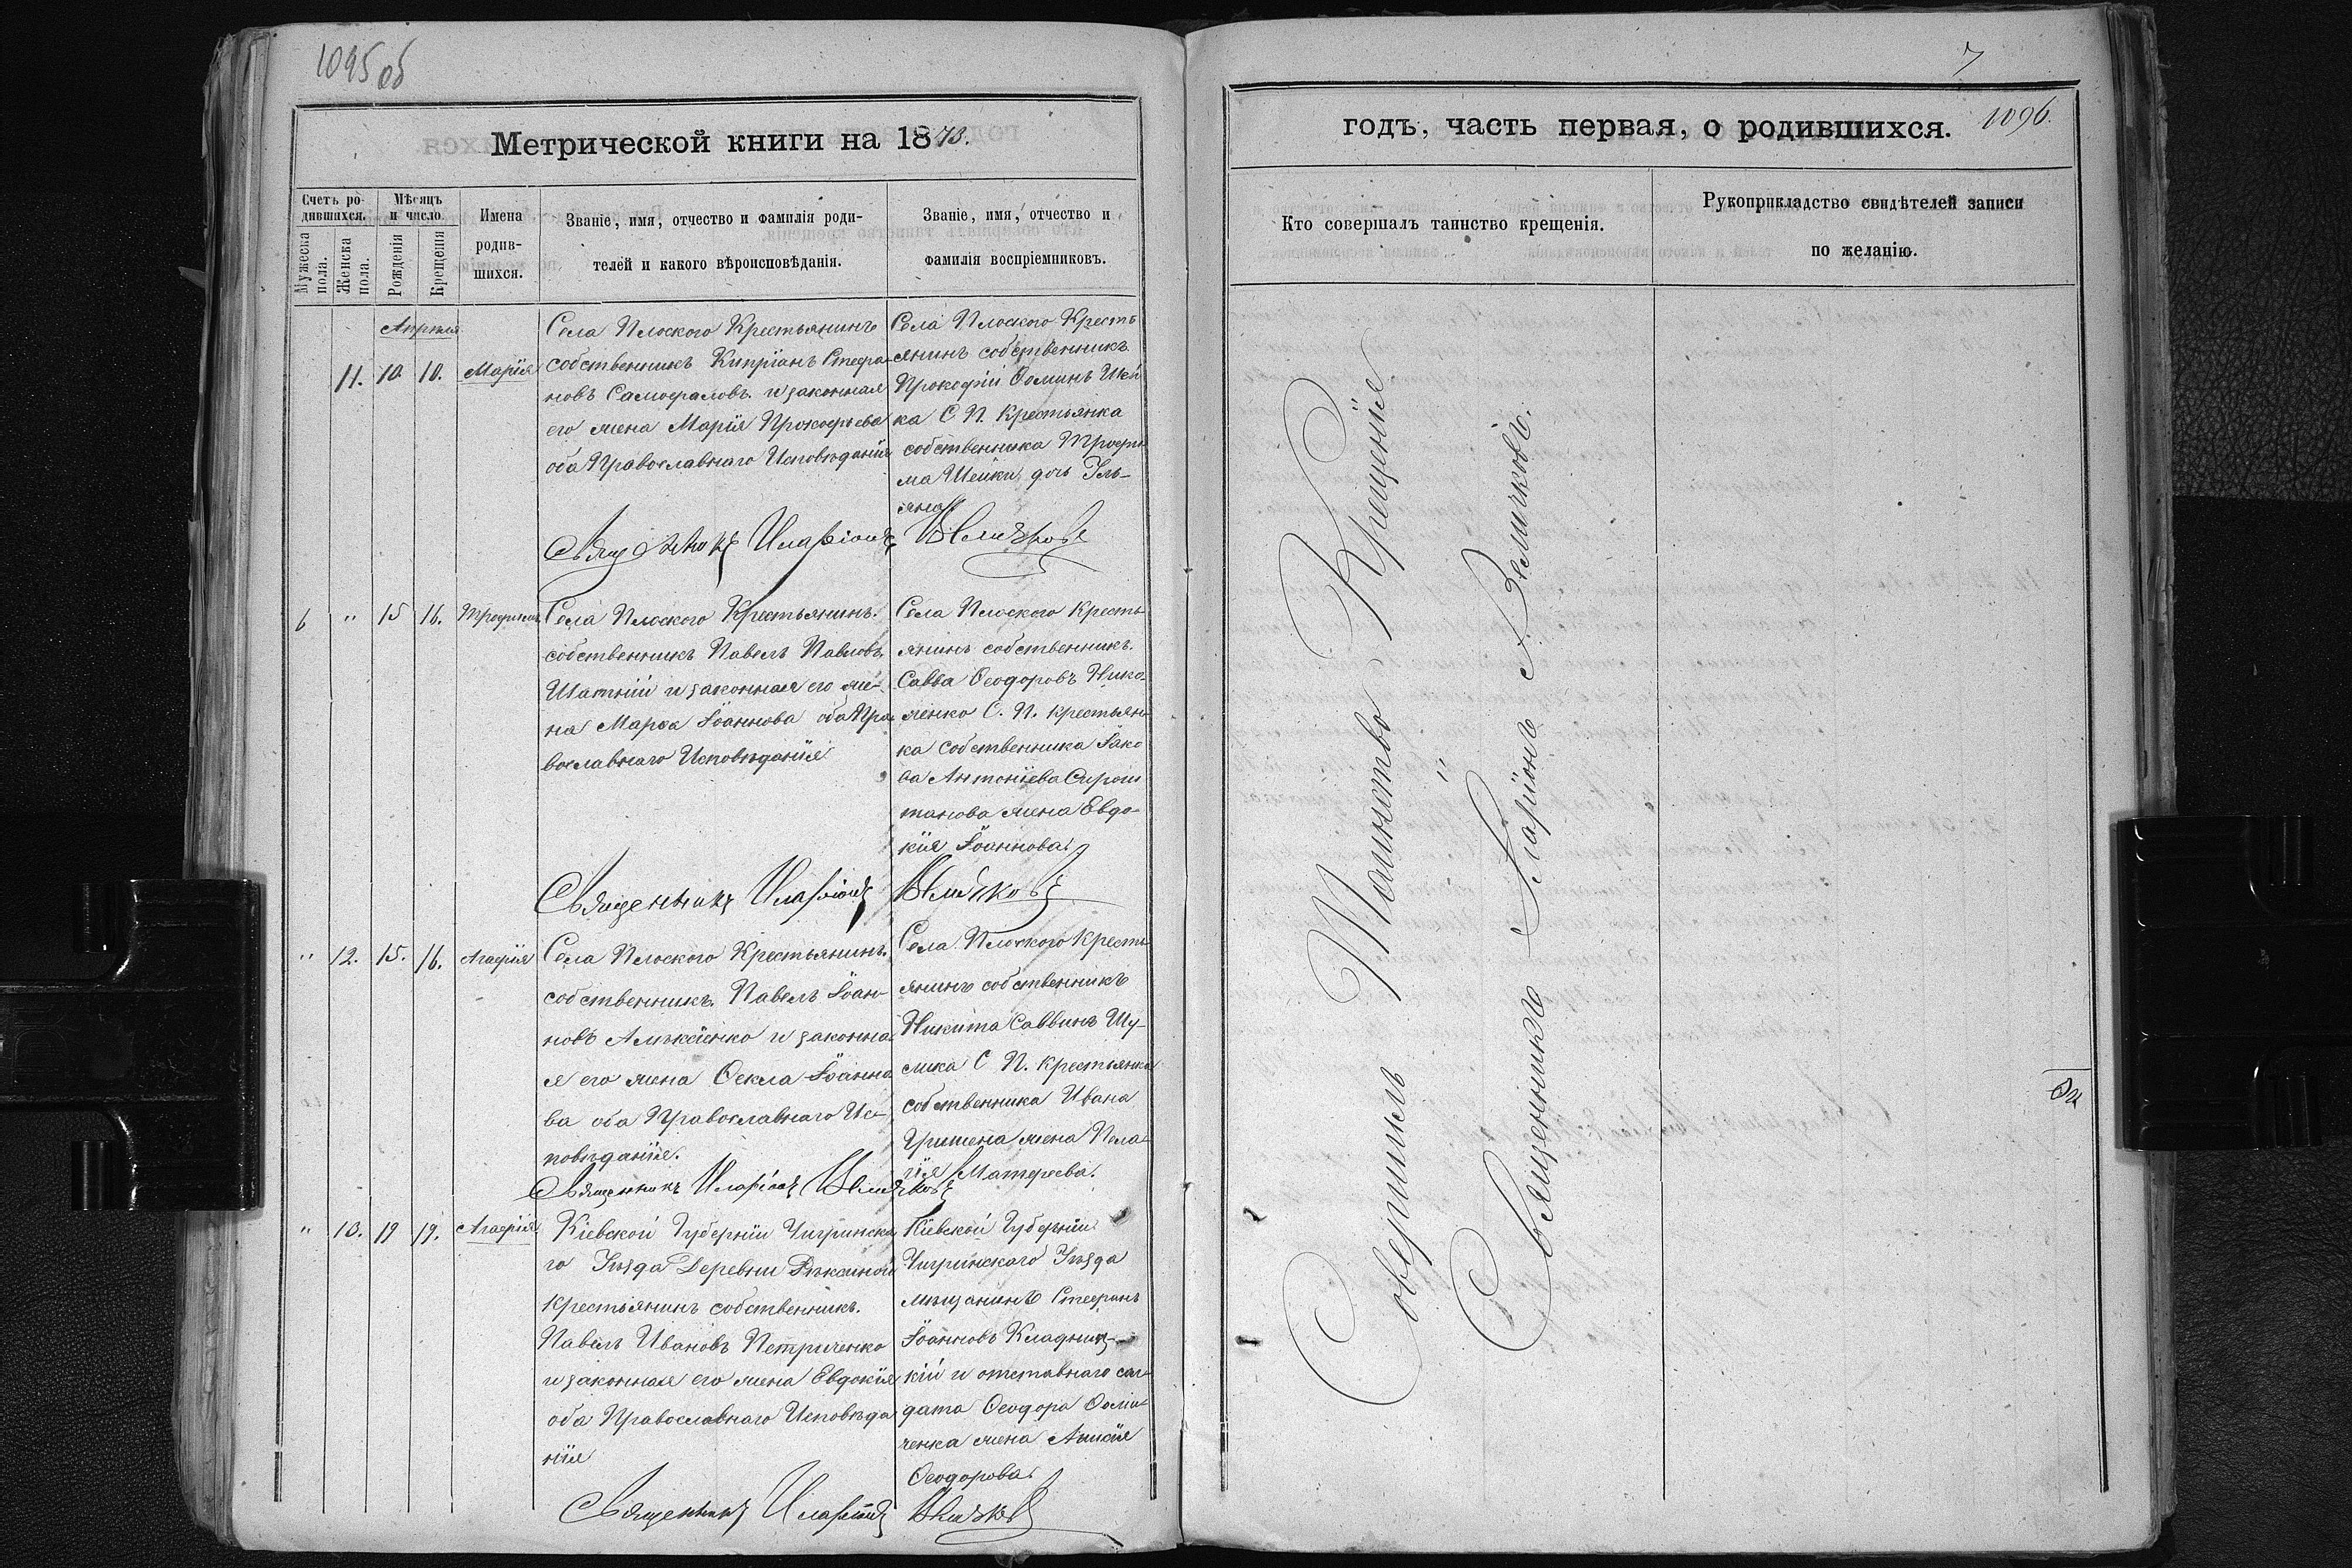 1095 об
Метрической книги на 1873.
Счетъ ро-
дившихся.
Мужеска пола.
Женска пола.
Мѣсяцъ
и число.
Рожденія
Крещенія
Имена
родив-
шихся.
Званіе, имя, отчество и фамилія роди-
телей и какого вѣроисповѣданія.
Званіе, имя, отчество и
фамилія воспріемниковъ.
Апрѣля
11. 10. 10. Марія
Села Плоского Крестьянинъ
собственникъ Кипріанъ Стефа-
новъ Самофаловъ и законная
его жена Марія Прокофьева
оба Православнаго Исповѣданія
Села Плоского Кресть
янинъ собственникъ
Прокофій Ѳоминъ Шей
ка С. П. Крестьянка
собственника Трофи
ма Шейки дочь Іуль-
яна
Священникъ Иларіонъ Величковъ
6 " 15 16. Трофимъ
Села Плоского Крестьянинъ
собственникъ Павелъ Павловъ
и законная его же-
на Марѳа Іоаннова оба Пра-
вославнаго Исповѣданія
Села Плоского Кресть
янинъ собственникъ
Савва Ѳеодоровъ Нико
ленко С. П. крестьян-
ка собственника Іако
ва Антоніева
жена Евдо-
кія Іоаннова
Священникъ Иларіонъ Величковъ
" 12. 15. 16. Агафія
Села Плоского Крестьянинъ
собственникъ Павелъ Іоан-
новъ и законна-
я его жена Ѳекла Іоанно
ва оба Православнаго Ис-
повѣданія.
Села Плоского Кресть
янинъ собственникъ
Никита Саввинъ Шу-
лика С П. крестьянка
собственника Ивана
жена Пела-
гія Матфеева.
Священникъ Иларіонъ Величковъ
" 13. 19 19. Агафія
Кіевской Губерніи Чигринска
го Уѣзда Деревни
крестьянинъ собственникъ
Павелъ Ивановъ Петриченко
и законная его жена Евдокія
оба Православнаго Исповѣда
нія
Кіевской Губерніи
Чигринскаго Уѣзда
мѣщанинъ Стефанъ
Іоанновъ
кій и отставнаго сол-
дата Ѳеодора Ѳоми-
ченка жена
Ѳеодорова
Священникъ Иларіонъ Величковъ
7
1096.
годъ, часть первая, о родившихся.
Кто совершалъ таинство крещенія.
Рукоприкладство свидѣтелей записи
по желанію.
Совершилъ Таинство Крещенія
Священникъ Иларіонъ Величковъ.